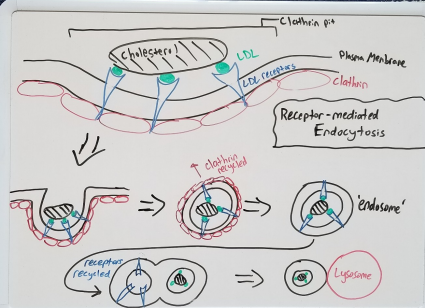 Clathrin pit
Cholesterol
LDL
Plasma Membrane
LDL receptors
clathrin
Receptor-mediated
Endocytosis
clathrin
recycled
'endosome'
receptors
recycled
Lysosome